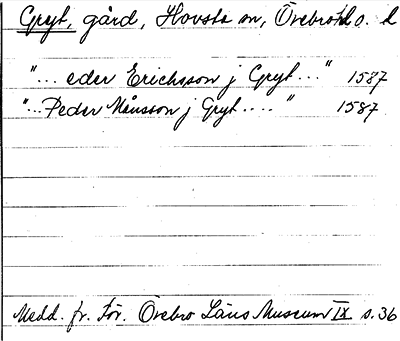 Gryt, gård, Hovsta sn, Örebro hd o. l
"... eder Ericksson j Gryt..." 1587
"... Peder Månsson j Gryt ...." 1587
Medd. fr. För. Örebro Läns Museum IX s. 36